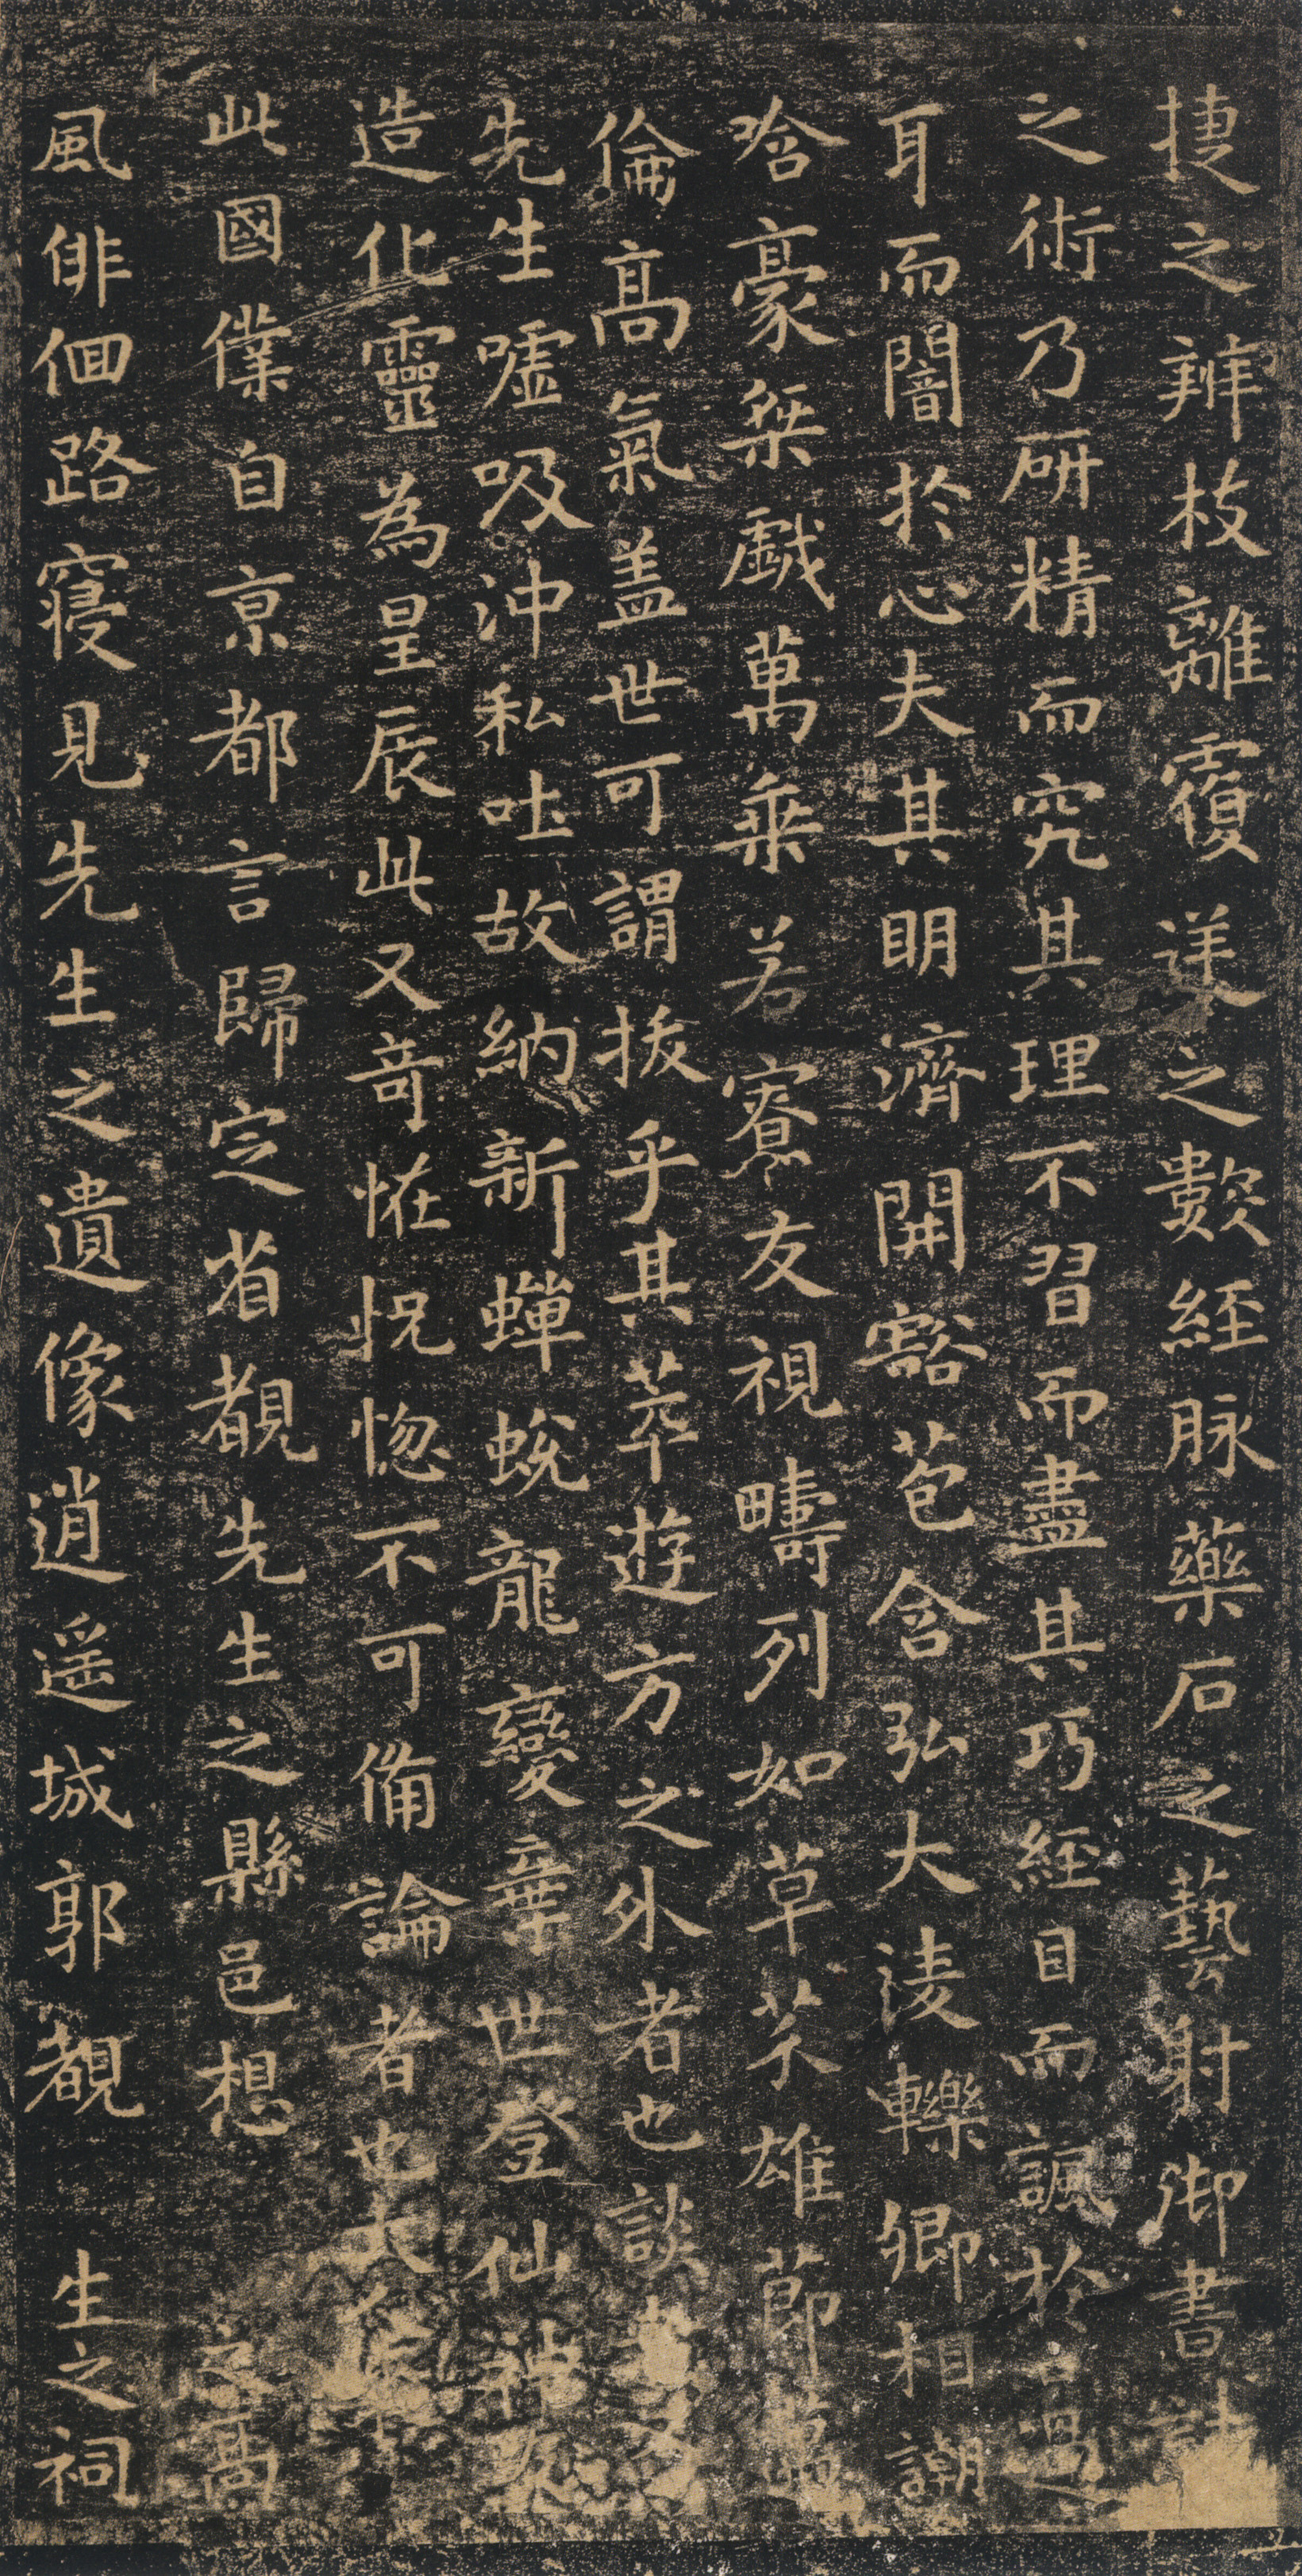 捷之辨枝離覆逆之數経脉藥石之藝射御書計
之術乃研精而究其理不習而盡其巧経目而諷於口過
耳而闇於心夫其明濟開豁苞含弘大淩轢卿相謿
哈豪桀戯萬乗若寮友視疇列如草芥雄莭邁
倫髙氣盖世可謂拔乎其萃遊方之外者也談者又
先生嘘吸沖和吐故納新蟬蛻龍變棄世登仙神友
造化靈為星辰此又奇恠怳惚不可備論者也大人
此國僕自京都言歸定省覩先生之縣邑想之髙
風俳佪路寝見先生之遺像逍遥城郭覩生之祠